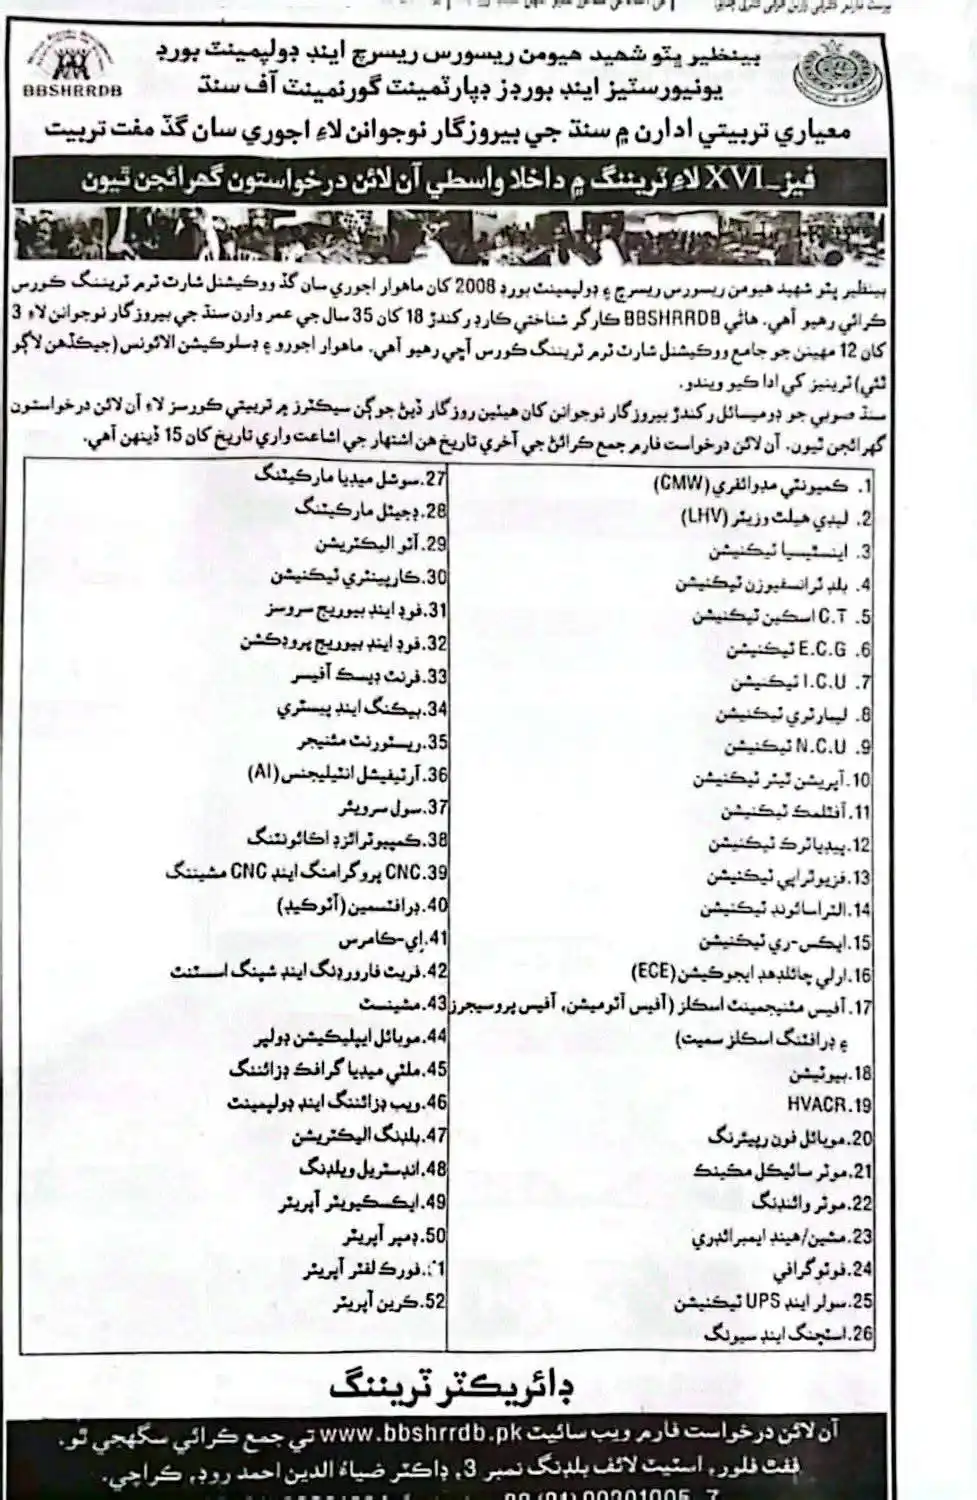 بينظير ڀٽو شهيد هيومن ريسورس ريسرچ اينڊ ڊولپمينٽ بورڊ
BBSHRRDB
يونيورسٽيز اينڊ بورڊز ڊپارٽمينٽ گورنمينٽ آف سنڌ
معياري تربيتي ادارن ۾ سنڌ جي بيروزگار نوجوانن لاءِ اجوري سان گڏ مفت تربيت
فيز-XVI لاءِ ٽريننگ ۾ داخلا واسطي آن لائن درخواستون گهرائجن ٿيون
بينظير ڀٽو شهيد هيومن ريسورس ريسرچ ۽ ڊولپمينٽ بورڊ 2008 کان ماهوار اجوري سان گڏ ووڪيشنل شارٽ ٽرم ٽريننگ ڪورس
ڪرائي رهيو آهي. هاڻي BBSHRRDB ڪارگر شناختي ڪارڊ رکندڙ 18 کان 35 سال جي عمر وارن سنڌ جي بيروزگار نوجوانن لاءِ 3
کان 12 مهينن جو جامع ووڪيشنل شارٽ ٽرم ٽريننگ ڪورس آڇي رهيو آهي. ماهوار اجورو ۽ ڊسلوڪيشن الائونس (جيڪڏهن لاڳو
ٿئي) ٽرينيز کي ادا ڪيو ويندو.
سنڌ صوبي جو ڊوميسائل رکندڙ بيروزگار نوجوانن کان هيٺين روزگار ڏيڻ جوڳن سيڪٽرز ۾ تربيتي ڪورسز لاءِ آن لائن درخواستون
گهرائجن ٿيون. آن لائن درخواست فارم جمع ڪرائڻ جي آخري تاريخ هن اشتهار جي اشاعت واري تاريخ کان 15 ڏينهن آهي.
1. ڪميونٽي مڊوائفري (CMW)
2. ليڊي هيلٿ وزيٽر (LHV)
3. اينسٿيسيا ٽيڪنيشن
4. بلڊ ٽرانسفيوزن ٽيڪنيشن
5. C.T اسڪين ٽيڪنيشن
6. E.C.G ٽيڪنيشن
7. I.C.U ٽيڪنيشن
8. ليبارٽري ٽيڪنيشن
9. N.C.U ٽيڪنيشن
10. آپريشن ٿيٽر ٽيڪنيشن
11. آفٿلمڪ ٽيڪنيشن
12. پيڊياٽرڪ ٽيڪنيشن
13. فزيوٿراپي ٽيڪنيشن
14. الٽراسائونڊ ٽيڪنيشن
15. ايڪس-ري ٽيڪنيشن
16. ارلي چائلڊهڊ ايجوڪيشن (ECE)
17. آفيس مئنيجمينٽ اسڪلز (آفيس آٽوميشن، آفيس پروسيجرز
۽ ڊرافٽنگ اسڪلز سميت)
18. بيوٽيشن
19. HVACR
20. موبائل فون رپيئرنگ
21. موٽر سائيڪل مڪينڪ
22. موٽر وائنڊنگ
23. مشين/هينڊ ايمبرائڊري
24. فوٽوگرافي
25. سولر اينڊ UPS ٽيڪنيشن
26. اسٽچنگ اينڊ سيونگ
27. سوشل ميڊيا مارڪيٽنگ
28. ڊجيٽل مارڪيٽنگ
29. آٽو اليڪٽريشن
30. ڪارپينٽري ٽيڪنيشن
31. فوڊ اينڊ بيوريج سروسز
32. فوڊ اينڊ بيوريج پروڊڪشن
33. فرنٽ ڊيسڪ آفيسر
34. بيڪنگ اينڊ پيسٽري
35. ريسٽورنٽ مئنيجر
36. آرٽيفيشل انٽيليجنس (AI)
37. سول سرويئر
38. ڪمپيوٽرائزڊ اڪائونٽنگ
39. CNC پروگرامنگ اينڊ CNC مشيننگ
40. ڊرافٽسمين (آٽوڪيڊ)
41. اي-ڪامرس
42. فريٽ فارورڊنگ اينڊ شپنگ اسسٽنٽ
43. مشينسٽ
44. موبائل ايپليڪيشن ڊولپر
45. ملٽي ميڊيا گرافڪ ڊزائننگ
46. ويب ڊزائننگ اينڊ ڊولپمينٽ
47. بلڊنگ اليڪٽريشن
48. انڊسٽريل ويلڊنگ
49. ايڪسڪيويٽر آپريٽر
50. ڊمپر آپريٽر
فورڪ لفٽر آپريٽر
52. ڪرين آپريٽر
ڊائريڪٽر ٽريننگ
آن لائن درخواست فارم ويب سائيٽ www.bbshrrdb.pk تي جمع ڪرائي سگهجي ٿو.
ففٿ فلور، اسٽيٽ لائف بلڊنگ نمبر 3، ڊاڪٽر ضياءُ الدين احمد روڊ، ڪراچي.